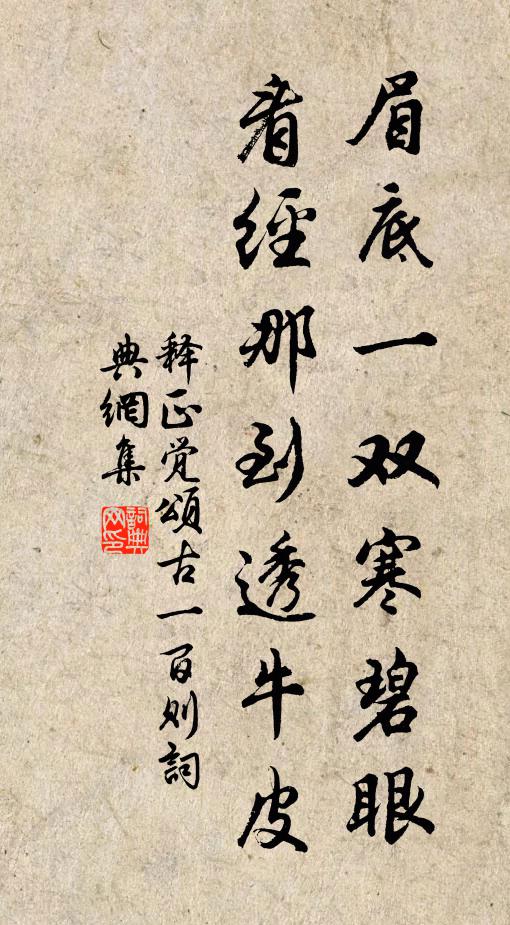 眉底一双寒碧眼
看经那到透牛皮
释正觉颂古一百则詞
典網集
詞典網印